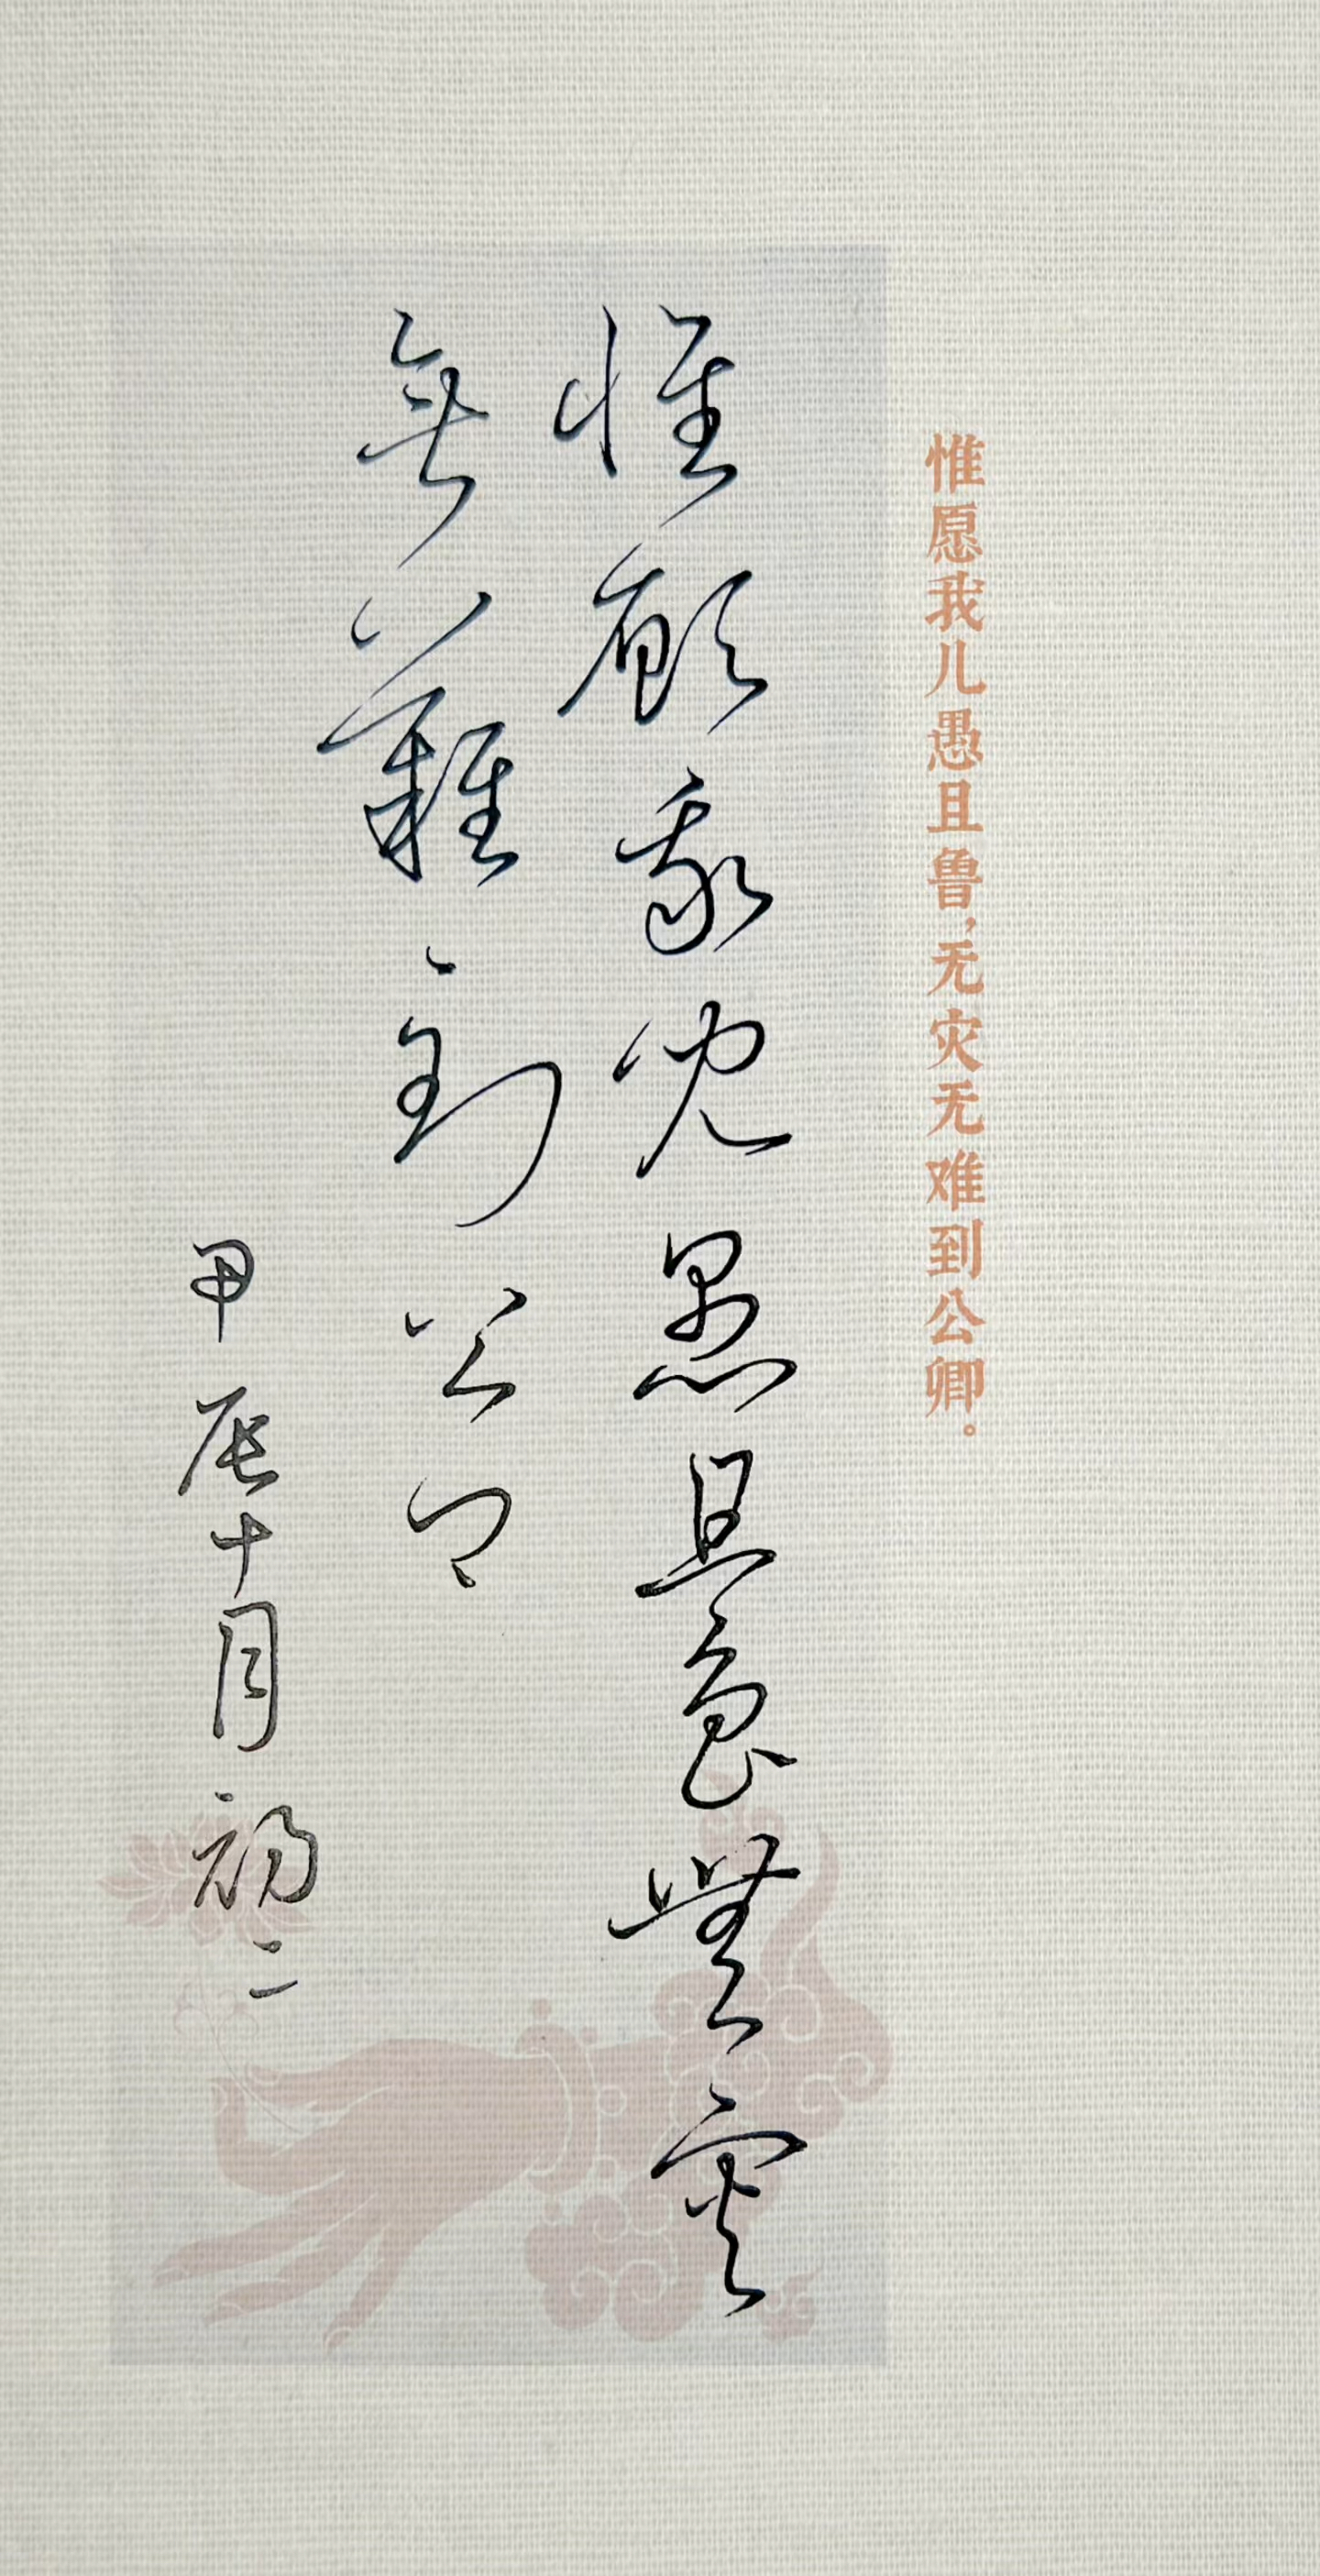 惟愿我儿愚且鲁，无灾无难到公卿。
惟願我児愚且魯無灾
無難到公卿
甲辰十月初二